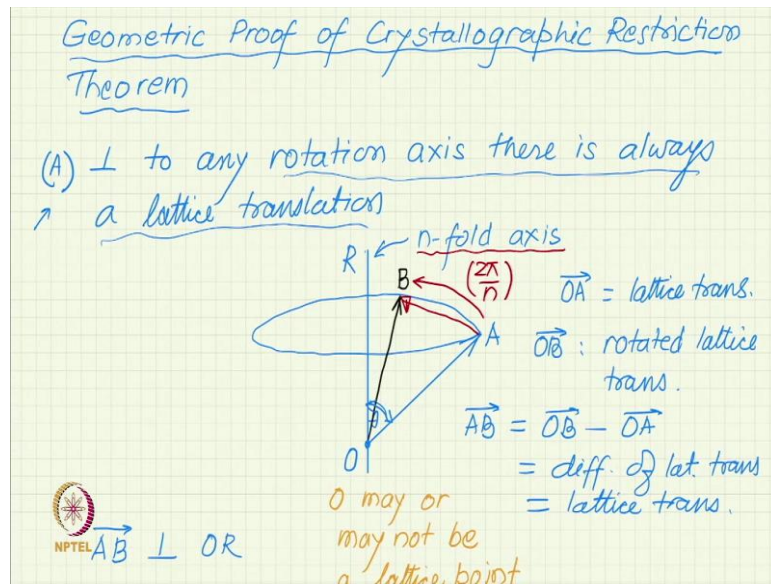 Geometric Proof of Crystallographic Restriction
Theorem
(A) ⊥ to any rotation axis there is always
a lattice translation
R
n-fold axis
B
(2π/n)
A
O
OA→ = lattice trans.
OB→ : rotated lattice
trans.
AB→ = OB→ − OA→
= diff. of lat. trans
= lattice trans.
O may or
may not be
a lattice point
NPTEL
AB→ ⊥ OR